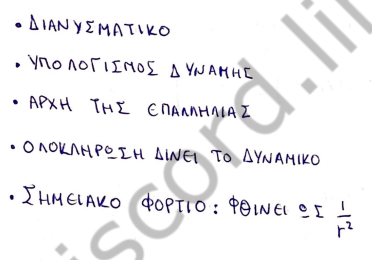 • ΔΙΑΝΥΣΜΑΤΙΚΟ
• ΥΠΟΛΟΓΙΣΜΟΣ ΔΥΝΑΜΗΣ
• ΑΡΧΗ ΤΗΣ ΕΠΑΛΛΗΛΙΑΣ
• ΟΛΟΚΛΗΡΩΣΗ ΔΙΝΕΙ ΤΟ ΔΥΝΑΜΙΚΟ
• ΣΗΜΕΙΑΚΟ ΦΟΡΤΙΟ: ΦΘΙΝΕΙ ΩΣ 1/r²